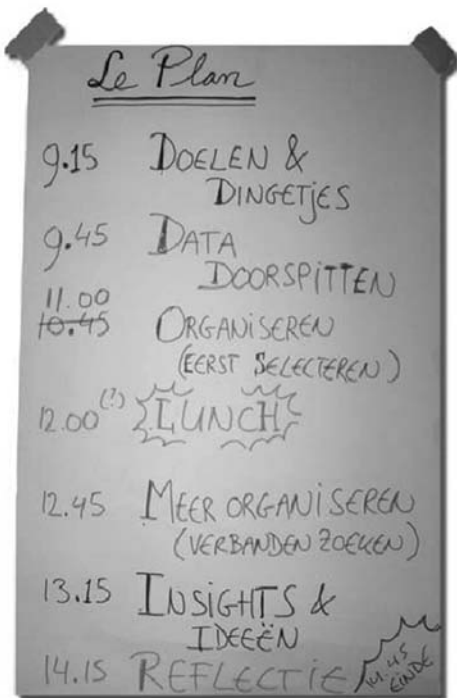 Le Plan
9.15 DOELEN &
DINGETJES
9.45 DATA
DOORSPITTEN
11.00
10.45 ORGANISEREN
(EERST SELECTEREN)
12.00 (?) LUNCH
12.45 MEER ORGANISEREN
(VERBANDEN ZOEKEN)
13.15 INSIGHTS &
IDEEËN
14.15 REFLECTIE
14.45
EINDE